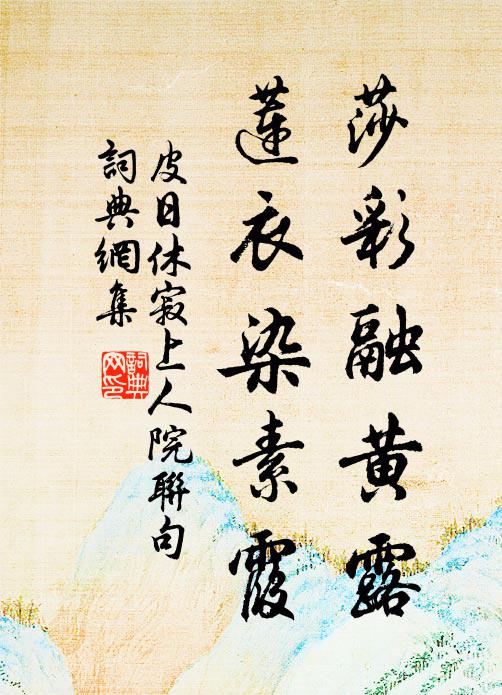 莎彩融黄露
蓮衣染素霞
皮日休寂上人院聯句
詞典網集
詞典网印